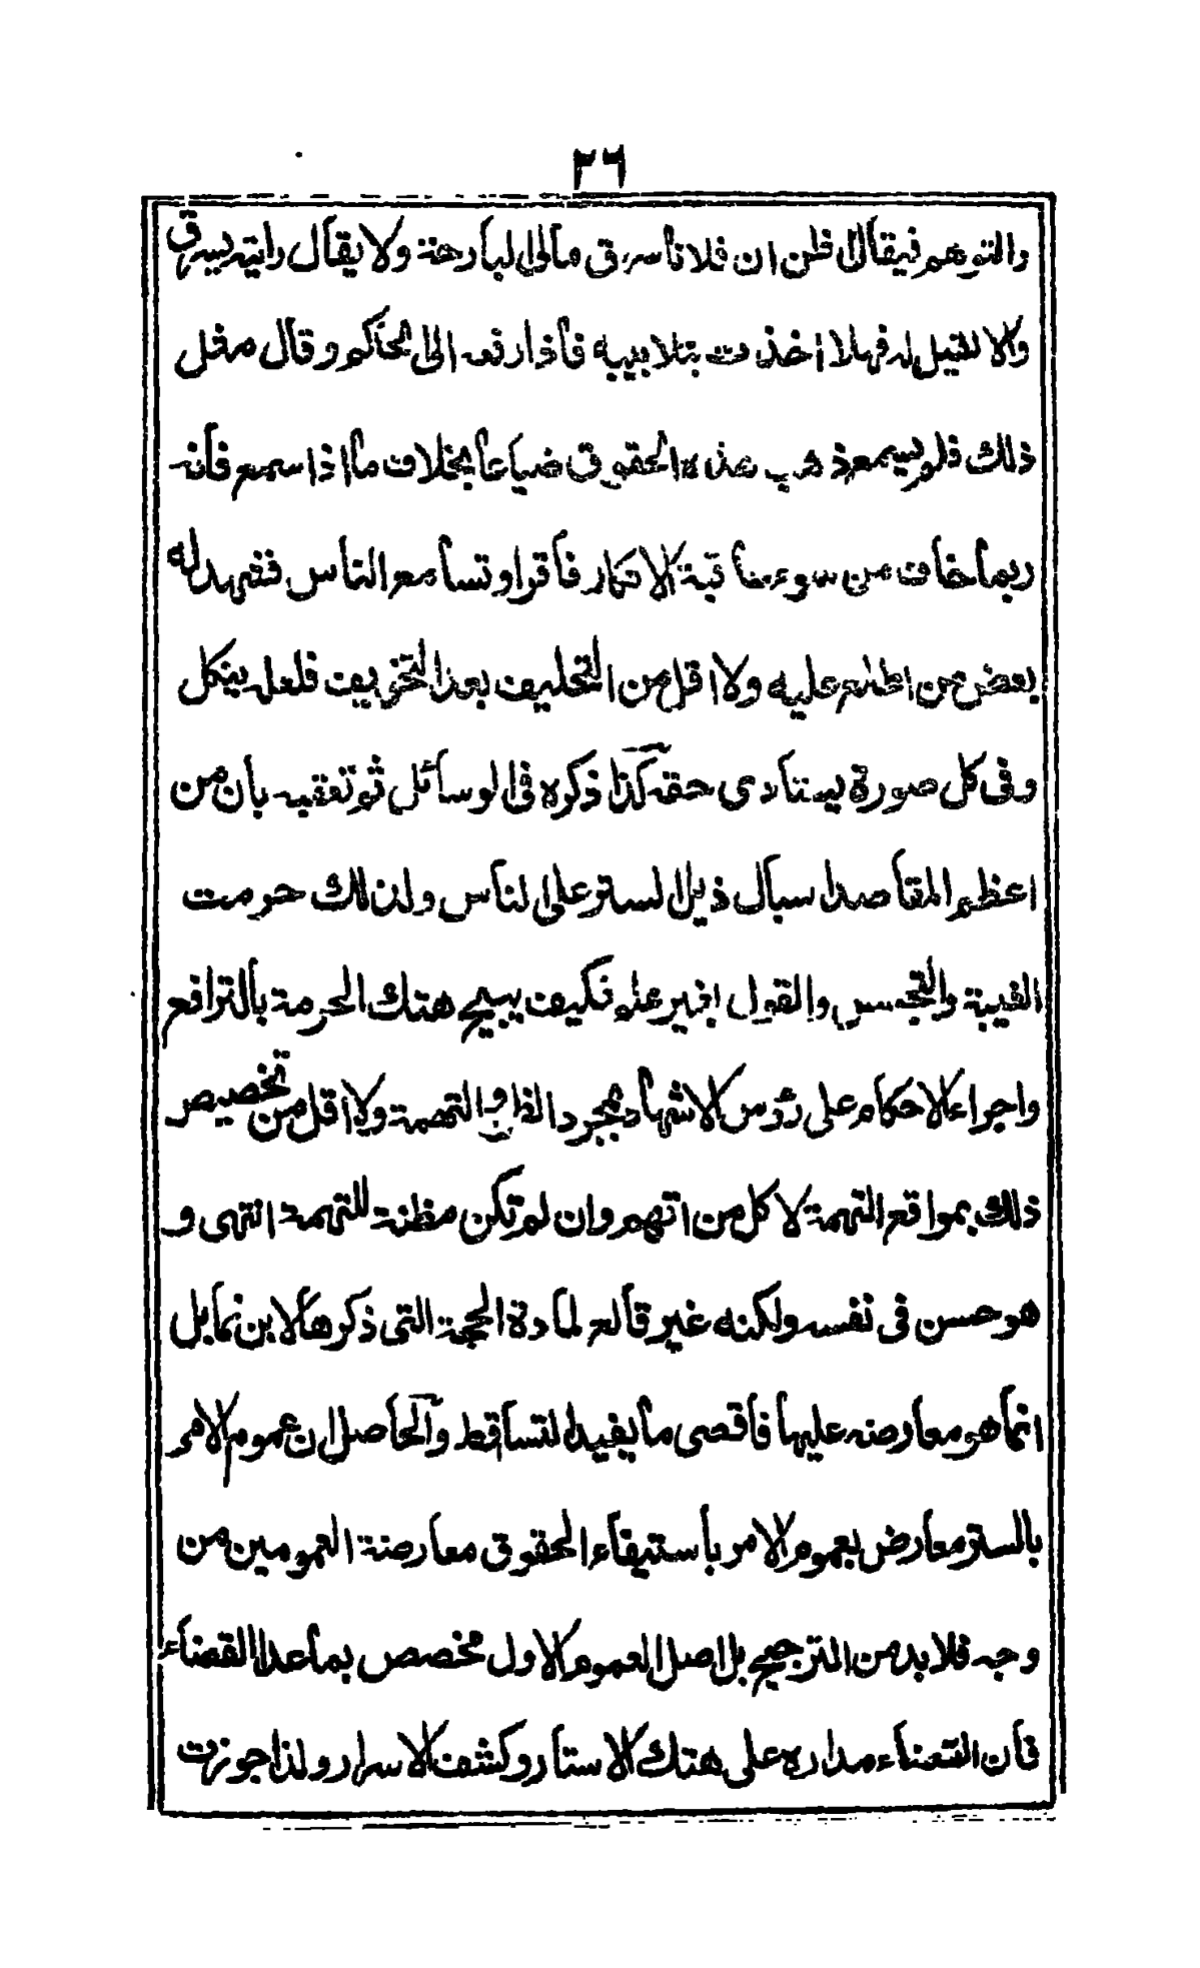 ٢٦
والتوهم فيقال اظن ان فلانا سرق مالى البارحة ولا يقال رايته يسرق
والا لقيل له فهلا اخذت بتلابيبه فاذا رفعه الى الحاكم وقال مثل
ذلك فلو لم يسمع ذهب هذه الحقوق ضياعا بخلاف ما اذا سمع فانه
ربما خاف من سوء عاقبة الانكار فاقر او تسامع الناس فشهد له
بعض من اطلع عليه ولا اقل من التحليف بعد التخويف فلعله ينكل
وفى كل صورة يستادى حقه كذا ذكره فى الوسائل ثم تعقبه بان من
اعظم المقاصد اسبال ذيل الستر على الناس ولذلك حرمت
الغيبة والتجسس والقول بغير علم فكيف يبيح هتك الحرمة بالترافع
واجراء الاحكام على رؤس الاشهاد بمجرد الظن والتهمة ولا اقل من تخصيص
ذلك بمواقع التهمة لا كل من اتهم وان لم تكن مظنة للتهمة انتهى و
هو حسن فى نفسه ولكنه غير قالع لمادة الحجة التى ذكرها لابن نما بل
انما هو معارضه عليها فاقصى ما يفيد التساقط والحاصل ان عموم الامر
بالستر معارض بعموم الامر باستيفاء الحقوق معارضة العمومين من
وجه فلا بد من الترجيح بل اصل العموم الاول مخصص بما عدا القضاء
فان القضاء مداره على هتك الاستار وكشف الاسرار ولذا جوزت